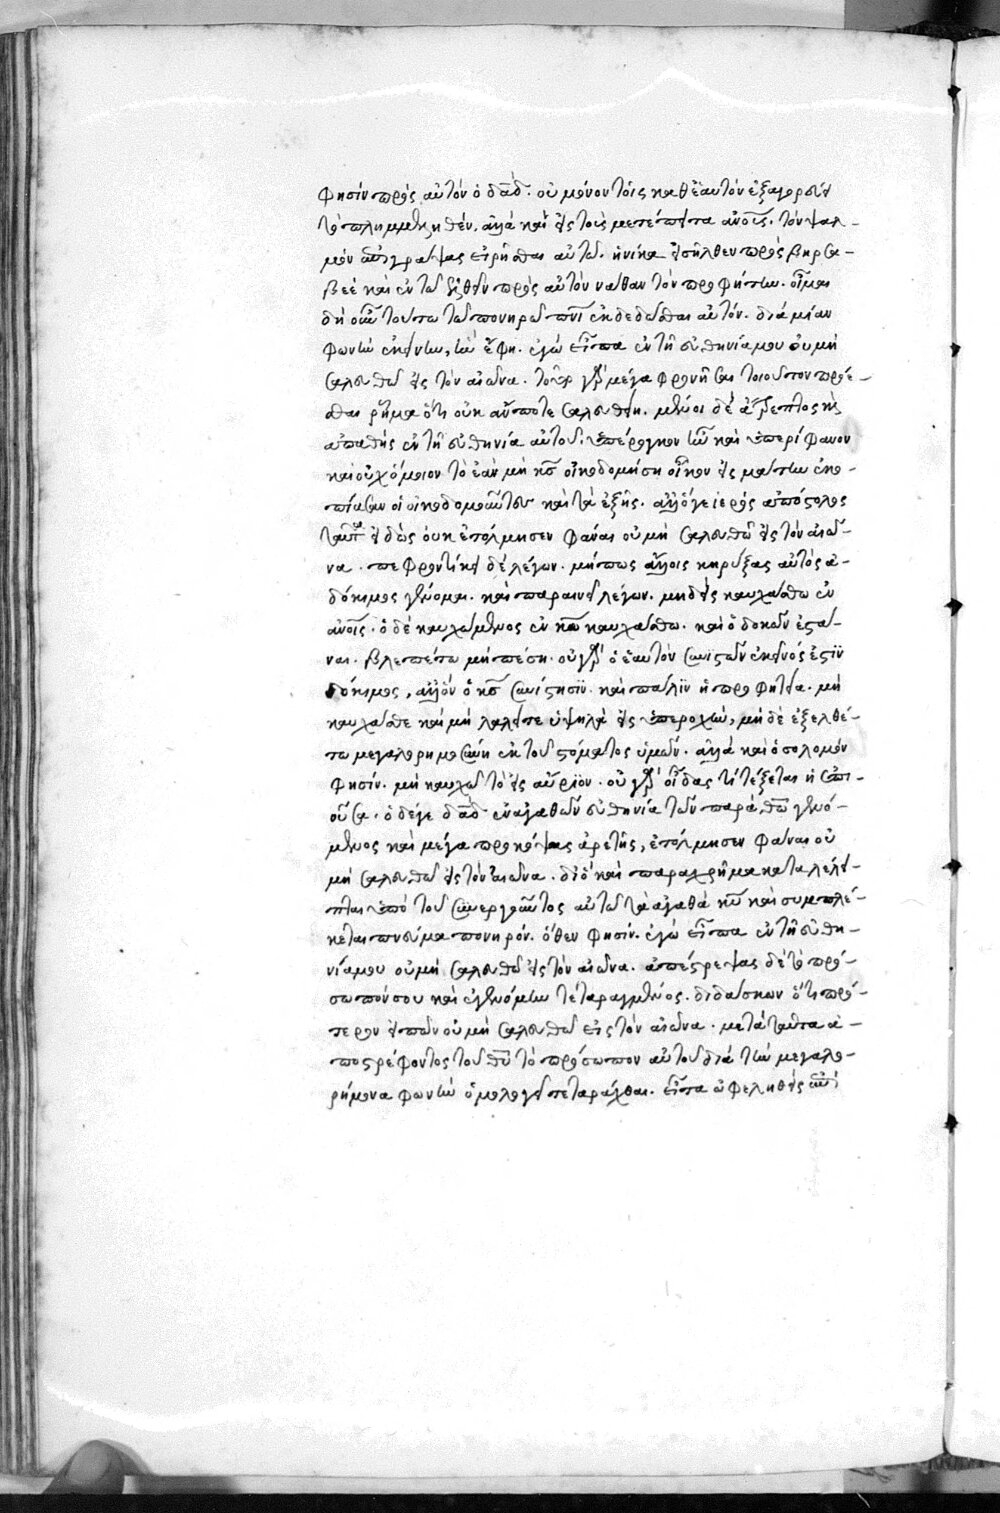 φησὶν πρὸς αὐτὸν ὁ δᾱδ· οὐ μόνον τοῖς καθ' ἑαυτὸν ἐξαγορεύει
τὸ πλημμεληθέν, ἀλλὰ καὶ εἰς τοὺς μετέπειτα ἀνοῖς. τὸν ψαλ-
μὸν ἐπιγράψας εἰρῆσθαι αὐτῷ. ἡνίκα εἰσῆλθεν πρὸς βηρσα-
βεὲ καὶ ἐν τῷ ἐλθεῖν πρὸς αὐτὸν ναθαν τὸν προφήτην. οἶμαι
δὴ οὖν τούτῳ τῷ πονηρῷ πνι ἐκδεδόσθαι αὐτόν. διὰ μίαν
φωνὴν ἐκείνην, ἣν ἔφη. ἐγὼ εἶπα ἐν τῇ εὐθηνίᾳ μου οὐ μὴ
σαλευθῶ εἰς τὸν αἰῶνα. γρ μέγα φρονῆσαι τοιοῦτον προέ-
σθαι ῥῆμα ὅτι οὐκ ἄν ποτε σαλευθείη. μένοι δὲ ἄτρεπτος κὶ
ἀπαθὴς ἐν τῇ εὐθηνίᾳ αὐτοῦ. ὑπέρογκον ἦν καὶ ὑπερήφανον
καὶ οὐχ ὅμοιον τὸ ἐὰν μὴ κς οἰκοδομήσῃ οἶκον εἰς μάτην ἐκο-
πίασαν οἱ οἰκοδομοῦντες καὶ τὰ ἑξῆς. ἀλλ' ὅγε ἱερὸς ἀπόστολος
ταῦτ' εἰδὼς οὐκ ἐτόλμησεν φάναι οὐ μὴ σαλευθῶ εἰς τὸν αἰῶ-
να. πεφροντίκει δὲ λέγων. μήπως ἄλλοις κηρύξας αὐτὸς ἀ-
δόκιμος γένομαι. καὶ παραινεῖ λέγων. μηδεὶς καυχάσθω ἐν
ἀνοῖς. ὁ δὲ καυχώμενος ἐν κω καυχάσθω. καὶ ὁ δοκῶν ἑστά-
ναι. βλεπέτω μὴ πέσῃ. οὐ γρ ὁ ἑαυτὸν συνιστῶν ἐκεῖνός ἐστιν
δόκιμος, ἀλλ' ὃν ὁ κς συνίστησιν. καὶ πάλιν ἡ προφητεία. μὴ
καυχᾶσθε καὶ μὴ λαλεῖτε ὑψηλὰ εἰς ὑπεροχήν, μὴ δὲ ἐξελθέ-
τω μεγαλορημοσύνη ἐκ τοῦ στόματος ὑμῶν. ἀλλὰ καὶ ὁ σολομὼν
φησίν. μὴ καυχῶ τὸ εἰς αὔριον. οὐ γρ οἶδας τί τέξεται ἡ ἐπι-
οῦσα. ὁ δέ γε δᾱδ ἐν ἀγαθῶν εὐθηνίᾳ τῶν παρὰ θῦ γενό-
μενος καὶ μέγα προκόψας ἀρετῆς, ἐτόλμησεν φάναι οὐ
μὴ σαλευθῶ εἰς τὸν αἰῶνα. διὸ καὶ παραχρῆμα καταλείπε-
ται ὑπὸ τοῦ συνεργοῦντος αὐτῷ τὰ ἀγαθὰ κῦ καὶ συμπλέ-
κεται πνεύμα πονηρόν. ὅθεν φησίν. ἐγὼ εἶπα ἐν τῇ εὐθη-
νίᾳ μου οὐ μὴ σαλευθῶ εἰς τὸν αἰῶνα. ἀπέστρεψας δὲ τὸ πρό-
σωπόν σου καὶ ἐγενόμην τεταραγμένος. διδάσκων ὅτι πρό-
τερον εἰπὼν οὐ μὴ σαλευθῶ εἰς τὸν αἰῶνα. μετὰ ταῦτα ἀ-
ποστρέφοντος τοῦ θῦ τὸ πρόσωπον αὐτοῦ διὰ τὴν μεγαλο-
ρήμονα φωνὴν ὁμολογεῖ τεταράχθαι. εἶτα ὠφεληθεὶς